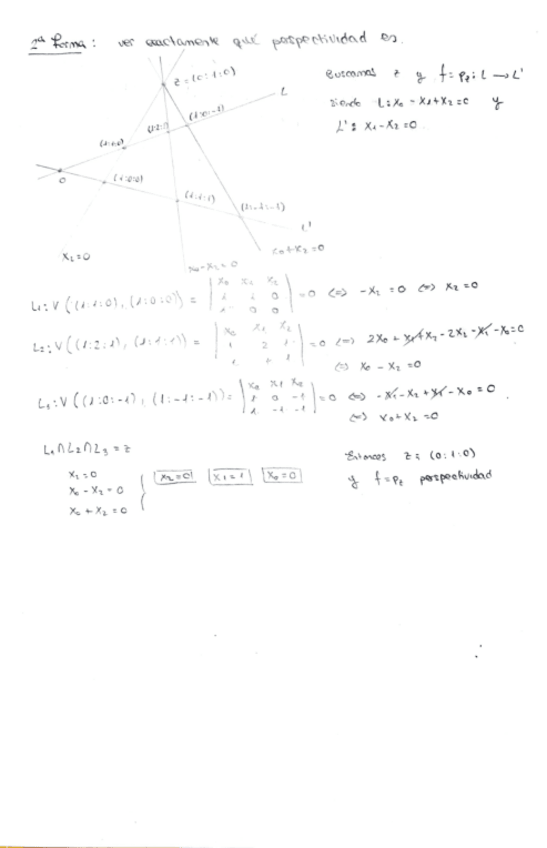 1ª Forma: ver exactamente qué perspectividad es.
z = (0:1:0)
Buscamos z y f = Pz: L → L'
L
siendo L: X0 - X1 + X2 = 0 y
(1:0:-1)
L': X1 - X2 = 0
(1:2:1)
(1:1:0)
(1:0:0)
O
(1:1:1)
(1:-1:-1)
L'
X2 = 0
X0 - X2 = 0
X0 + X2 = 0
L1: V((1:1:0), (1:0:0)) = | X0 X1 X2 | 1 1 0 | 1 0 0 | = 0 <=> -X2 = 0 <=> X2 = 0
L2: V((1:2:1), (1:1:1)) = | X0 X1 X2 | 1 2 1 | 1 1 1 | = 0 <=> 2X0 + X1 + X2 - 2X2 - X1 - X0 = 0
<=> X0 - X2 = 0
L3: V((1:0:-1), (1:-1:-1)) = | X0 X1 X2 | 1 0 -1 | 1 -1 -1 | = 0 <=> -X1 - X2 + X1 - X0 = 0
<=> X0 + X2 = 0
L1 ∩ L2 ∩ L3 = z
Entonces z = (0:1:0)
X2 = 0
X0 - X2 = 0
X0 + X2 = 0
X2 = 0 X1 = 1 X0 = 0
y f = Pz perspectividad